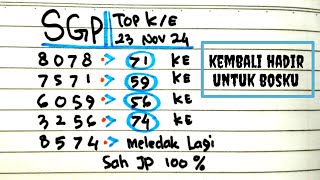 SGP
TOP K/E
23 Nov 24
8078 > 71 KE
7571 > 59 KE
6059 > 56 KE
3256 > 74 KE
8574 > Meledak Lagi
Sah JP 100%
KEMBALI HADIR
UNTUK BOSKU